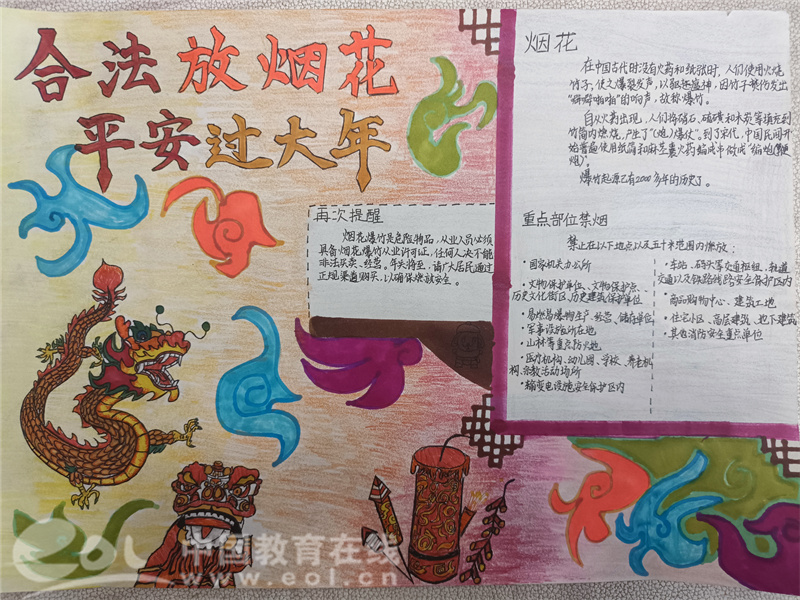 合法放烟花
平安过大年
再次提醒
烟花爆竹是危险物品，从业人员必须
具备烟花爆竹从业许可证，任何人决不能
非法买卖、经营。年关将至，请广大居民通过
正规渠道购买，以确保燃放安全。
烟花
在中国古代时没有火药和纸张时，人们使用火烧
竹子，使之爆裂发声，以驱逐瘟神，因竹子焚仍发出
"噼噼啪啪"的响声，故称爆竹。
自从火药出现，人们将硝石、硫磺和木炭等填充到
竹筒内燃烧，产生了"(炮)爆仗"。到了宋代，中国民间开
始普遍使用纸筒和麻茎裹火药编成串做成"编炮
炮)。
爆竹起源已有2000多年的历史了。
重点部位禁烟
禁止在以下地点以及五十米范围内燃放：
·国家机关办公所
·文物保护单位、文物保护点、
历史文化街区、历史建筑保护单位
·易燃易爆物生产、经营、储存单位
·军事设施所在地
·山林等重点防火地
·医疗机构、幼儿园、学校、养老机
构、宗教活动场所
·输变电设施安全保护区内
·车站、码头等交通枢纽、轨道
交通以及铁路线路安全保护区内
·商品购物中心、建筑工地
·住宅小区、高层建筑、地下建筑
·其他消防安全重点单位
eol 中国教育在线
www.eol.cn